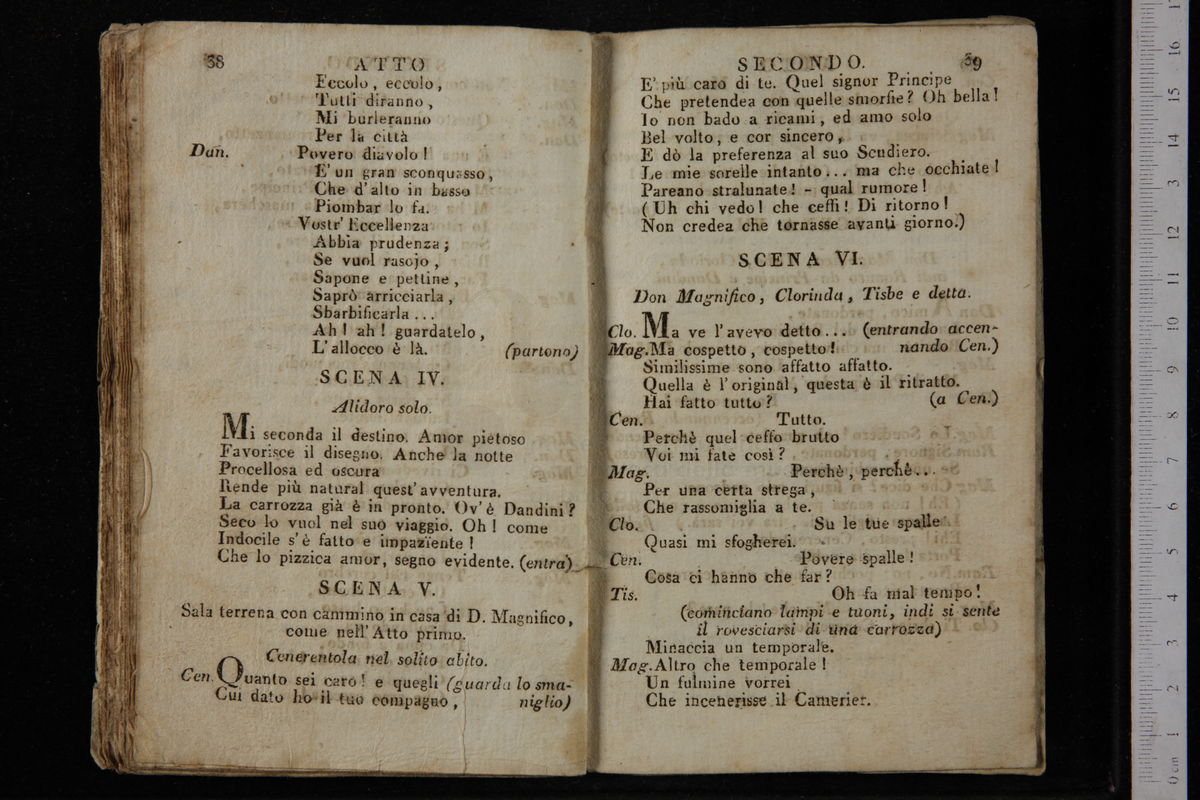 38
ATTO
Eccolo, eccolo,
Tutti diranno,
Mi burleranno
Per la città
Dan. Povero diavolo!
E' un gran sconquasso,
Che d'alto in basso
Piombar lo fa.
Vostr' Eccellenza
Abbia prudenza;
Se vuol rasojo,
Sapone e pettine,
Saprò arricciarla,
Sbarbificarla...
Ah! ah! guardatelo,
L'allocco è là. (partono)
SCENA IV.
Alidoro solo.
Mi seconda il destino. Amor pietoso
Favorisce il disegno. Anche la notte
Procellosa ed oscura
Rende più natural quest'avventura.
La carrozza già è in pronto. Ov'è Dandini?
Seco lo vuol nel suo viaggio. Oh! come
Indocile s'è fatto e impaziente!
Che lo pizzica amor, segno evidente. (entra)
SCENA V.
Sala terrena con cammino in casa di D. Magnifico,
come nell'Atto primo.
Cenerentola nel solito abito.
Cen. Quanto sei caro! e quegli (guarda lo sma-
Cui dato ho il tuo compagno, niglio)
SECONDO. 39
E' più caro di te. Quel signor Principe
Che pretendea con quelle smorfie? Oh bella!
Io non bado a ricami, ed amo solo
Bel volto, e cor sincero,
E dò la preferenza al suo Scudiero.
Le mie sorelle intanto... ma che occhiate!
Pareano stralunate! - qual rumore!
(Uh chi vedo! che ceffi! Di ritorno!
Non credea che tornasse avanti giorno.)
SCENA VI.
Don Magnifico, Clorinda, Tisbe e detta.
Clo. Ma ve l'avevo detto... (entrando accen-
Mag. Ma cospetto, cospetto! nando Cen.)
Similissime sono affatto affatto.
Quella è l'original, questa è il ritratto.
Hai fatto tutto? (a Cen.)
Cen. Tutto.
Perchè quel ceffo brutto
Voi mi fate così?
Mag. Perchè, perchè...
Per una certa strega,
Che rassomiglia a te.
Clo. Su le tue spalle
Quasi mi sfogherei.
Cen. Povere spalle!
Cosa ci hanno che far?
Tis. Oh fa mal tempo!
(cominciano lampi e tuoni, indi si sente
il rovesciarsi di una carrozza)
Minaccia un temporale.
Mag. Altro che temporale!
Un fulmine vorrei
Che incenerisse il Camerier.